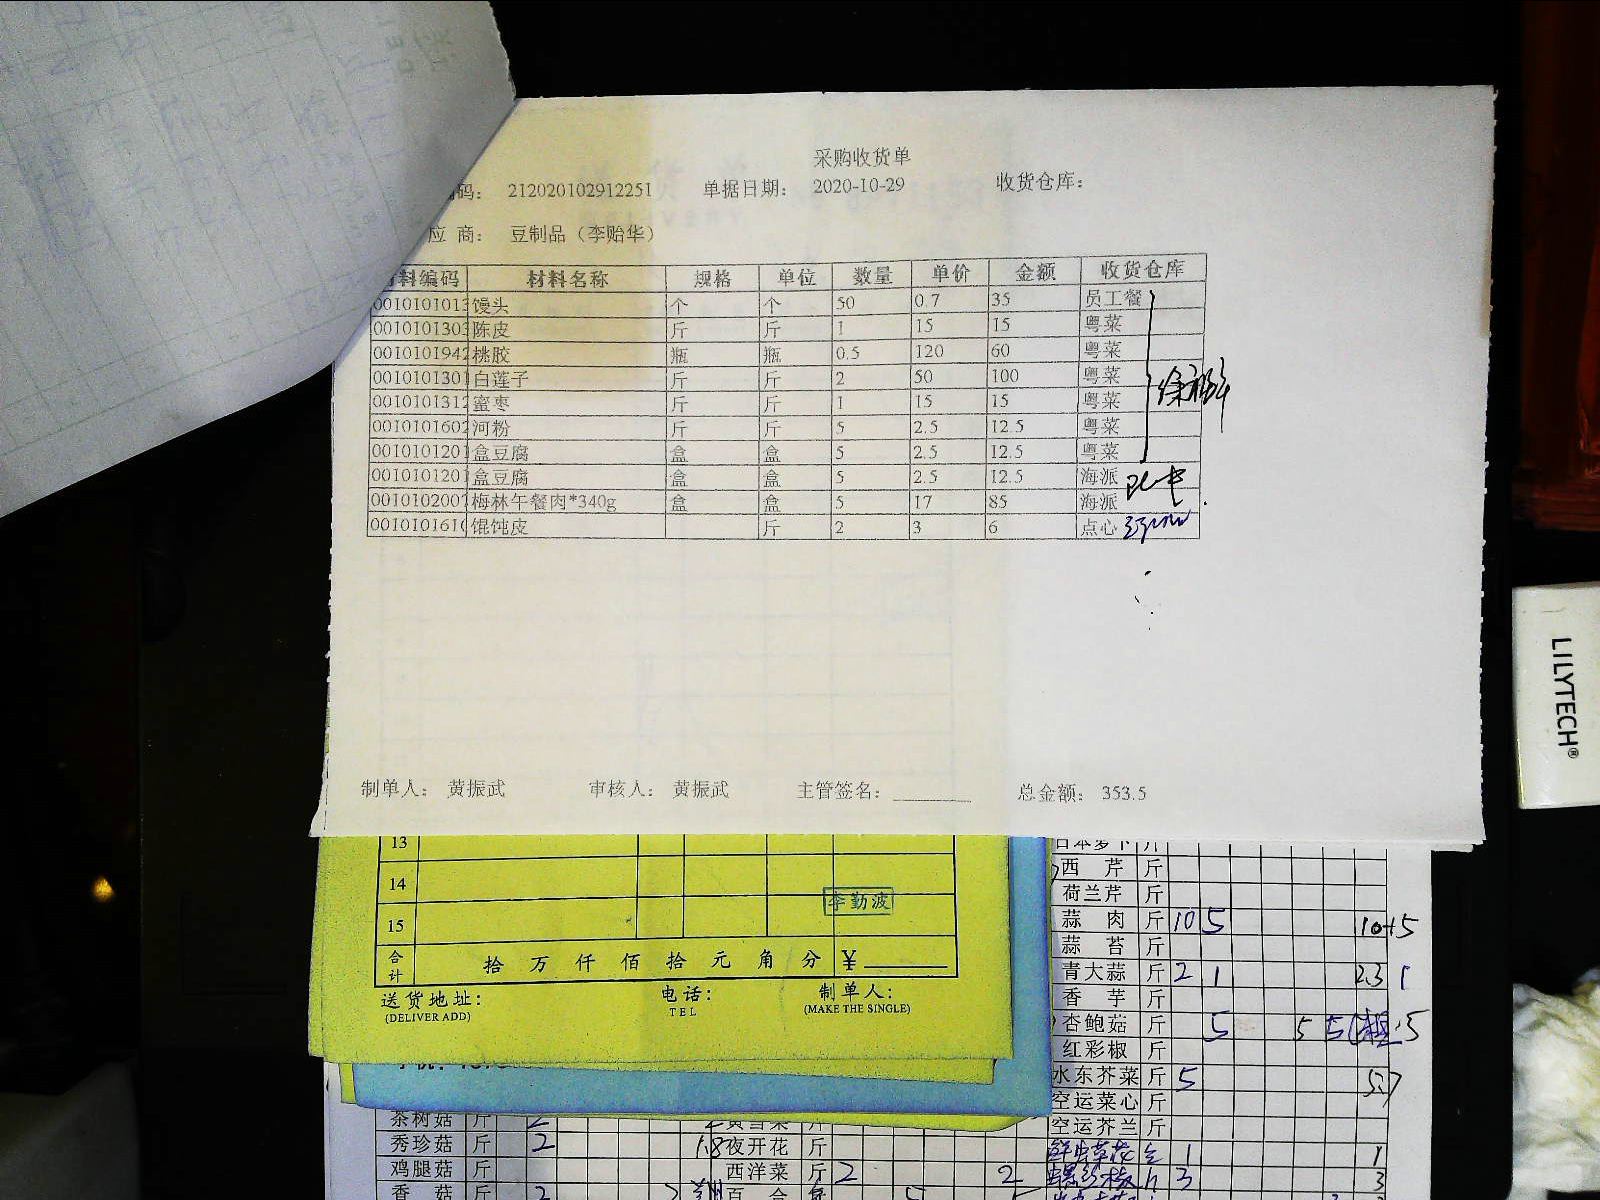 采购收货单
码: 212020102912251 单据日期: 2020-10-29 收货仓库:
应 商: 豆制品（李贻华）
料编码 材料名称 规格 单位 数量 单价 金额 收货仓库
0010101013 馒头 个 个 50 0.7 35 员工餐
0010101303 陈皮 斤 斤 1 15 15 粤菜
0010101942 桃胶 瓶 瓶 0.5 120 60 粤菜
0010101301 白莲子 斤 斤 2 50 100 粤菜
0010101312 蜜枣 斤 斤 1 15 15 粤菜
0010101602 河粉 斤 斤 5 2.5 12.5 粤菜
0010101201 盒豆腐 盒 盒 5 2.5 12.5 粤菜
0010101201 盒豆腐 盒 盒 5 2.5 12.5 海派
0010102007 梅林午餐肉*340g 盒 盒 5 17 85 海派
0010101610 馄饨皮 斤 2 3 6 点心
制单人: 黄振武 审核人: 黄振武 主管签名: 总金额: 353.5
LILYTECH®
13
14
李勤波
15
合计 拾 万 仟 佰 拾 元 角 分 ¥
送货地址: 电话: 制单人:
(DELIVER ADD) TEL (MAKE THE SINGLE)
日本萝卜 斤
西 芹 斤
荷兰芹 斤
蒜 肉 斤 10 5 10+5
蒜 苔 斤
青大蒜 斤 2 1 2.3 1
香 芋 斤
杏鲍菇 斤 5 5 5
红彩椒 斤
水东芥菜 斤 5 5.7
空运菜心 斤
空运芥兰 斤
茶树菇 斤 2
秀珍菇 斤 2 1.8 夜开花 斤
鸡腿菇 斤 西洋菜 斤 2 2
香 菇 斤 2 百 合